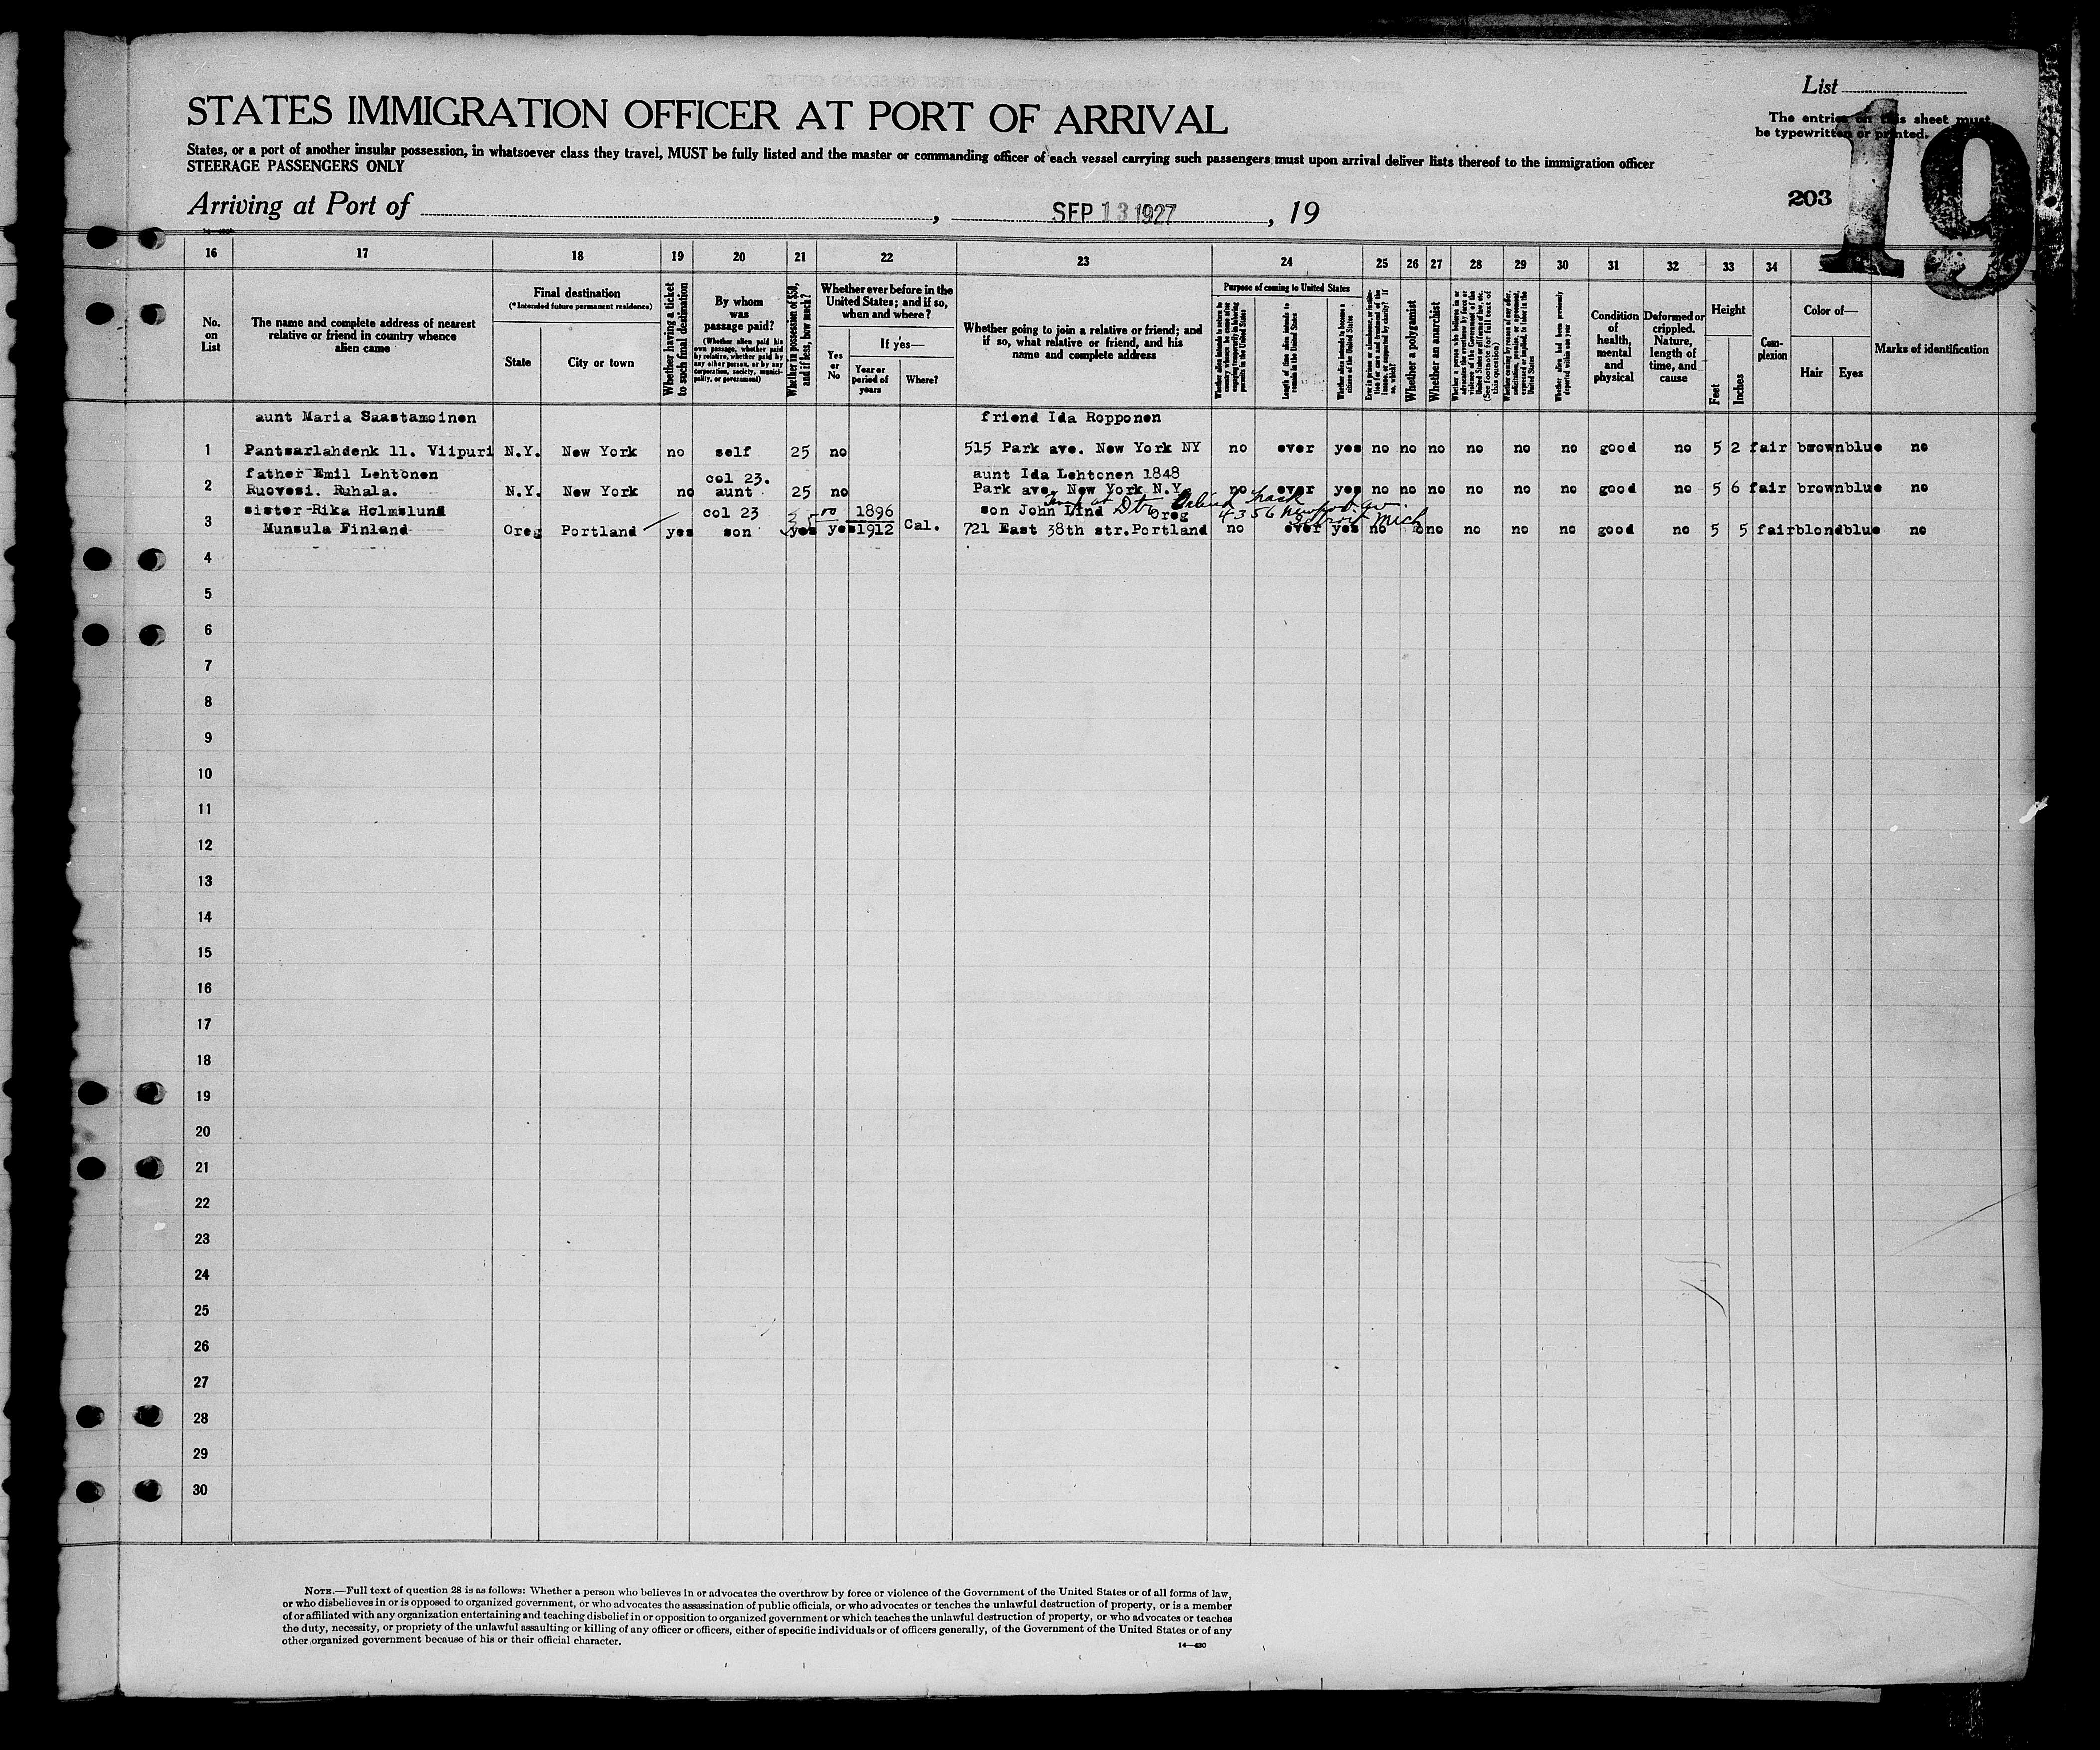 List
STATES IMMIGRATION OFFICER AT PORT OF ARRIVAL
The entries on this sheet must
be typewritten or printed.
19
States, or a port of another insular possession, in whatsoever class they travel, MUST be fully listed and the master or commanding officer of each vessel carrying such passengers must upon arrival deliver lists thereof to the immigration officer
STEERAGE PASSENGERS ONLY
203
Arriving at Port of , SEP 13 1927 , 19
16 17 18 19 20 21 22 23 24 25 26 27 28 29 30 31 32 33 34
No. on List
The name and complete address of nearest relative or friend in country whence alien came
Final destination
(*Intended future permanent residence)
State
City or town
Whether having a ticket to such final destination
By whom was passage paid?
(Whether alien paid his own passage, whether paid by relative, whether paid by any other person, or by any corporation, society, municipality, or government)
Whether in possession of $50, and if less, how much?
Whether ever before in the United States; and if so, when and where?
Yes or No
If yes—
Year or period of years
Where?
Whether going to join a relative or friend; and if so, what relative or friend, and his name and complete address
Purpose of coming to United States
Whether alien intends to return to country whence he came after engaging temporarily in laboring pursuits in the United States
Length of time alien intends to remain in the United States
Whether alien intends to become a citizen of the United States
Ever in prison or almshouse, or institution for care and treatment of the insane, or supported by charity? If so, which?
Whether a polygamist
Whether an anarchist
Whether a person who believes in or advocates the overthrow by force or violence of the Government of the United States or all forms of law, etc. (See footnote for full text of this question)
Whether coming by reason of any offer, solicitation, promise, or agreement, expressed or implied, to labor in the United States
Whether alien had been previously deported within one year
Condition of health, mental and physical
Deformed or crippled. Nature, length of time, and cause
Height
Feet
Inches
Complexion
Color of—
Hair
Eyes
Marks of identification
aunt Maria Saastamoinen friend Ida Ropponen
1 Pantsarlahdenk 11. Viipuri N.Y. New York no self 25 no 515 Park ave. New York NY no ever yes no no no no no no good no 5 2 fair brown blue no
father Emil Lehtonen col 23. aunt Ida Lehtonen 1848
2 Ruovesi. Ruhala. N.Y. New York no aunt 25 no Park ave. New York N.Y. no ever yes no no no no no no good no 5 6 fair brown blue no
sister Rika Holmslund col 23 1896 son John Lind Oreg
4356
Detroit Mich
3 Munsula Finland Oreg Portland yes son yes yes 1912 Cal. 721 East 38th str.Portland no ever yes no no no no no no good no 5 5 fair blond blue no
4
5
6
7
8
9
10
11
12
13
14
15
16
17
18
19
20
21
22
23
24
25
26
27
28
29
30
NOTE.—Full text of question 28 is as follows: Whether a person who believes in or advocates the overthrow by force or violence of the Government of the United States or of all forms of law,
or who disbelieves in or is opposed to organized government, or who advocates the assassination of public officials, or who advocates or teaches the unlawful destruction of property, or is a member
of or affiliated with any organization entertaining and teaching disbelief in or opposition to organized government or which teaches the unlawful destruction of property, or who advocates or teaches
the duty, necessity, or propriety of the unlawful assaulting or killing of any officer or officers, either of specific individuals or of officers generally, of the Government of the United States or of any
other organized government because of his or their official character.
14—430